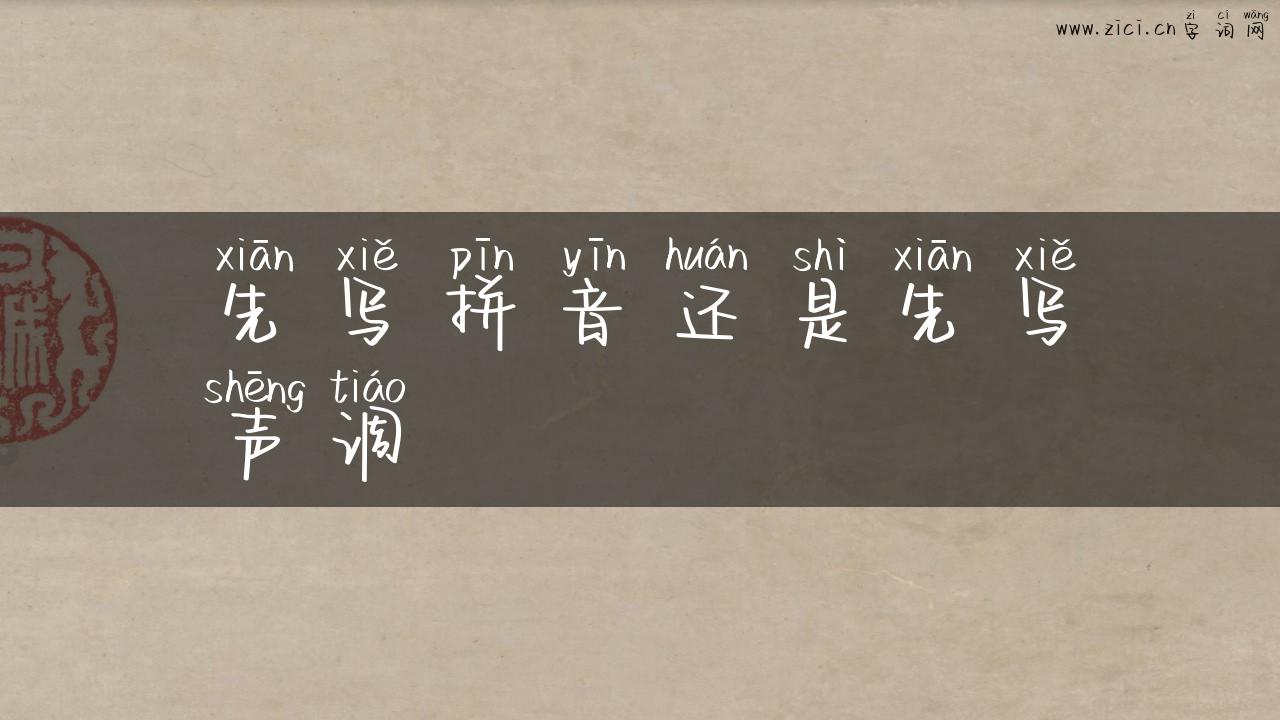 www.zici.cn字词网
zì cí wǎng
xiān xiě pīn yīn huán shì xiān xiě
先写拼音还是先写
shēng tiáo
声调